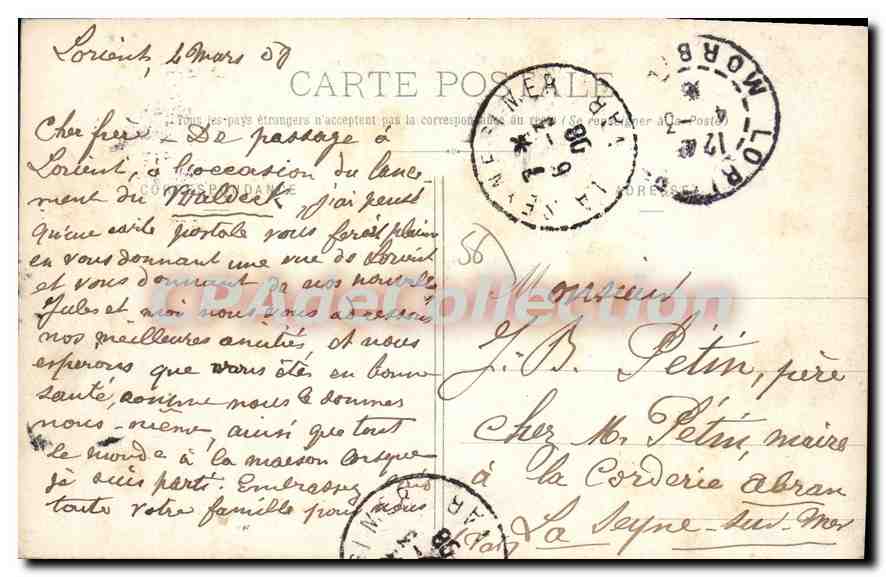 Lorient, 4 Mars 08
CARTE POSTALE
Tous les pays étrangers n'acceptent pas la correspondance au recto (Se renseigner à la Poste)
CORRESPONDANCE
ADRESSE
Cher frère – De passage à
Lorient, à l'occasion du lance-
ment du Waldeck, j'ai pensé
qu'une carte postale vous ferait plaisir
en vous donnant une vue de Lorient
et vous donnant de nos nouvelles
Jules et moi nous vous adressons
nos meilleures amitiés et nous
esperons que vous êtes en bonne
santé, comme nous le sommes
nous-même, ainsi que tout
le monde à la maison lorsque
je suis parti. Embrassez
toute votre famille pour nous
56
Monsieur
J. B. Pétin, père
chez M. Pétin, maire
à la Corderie
La Seyne-sur-Mer
(Var)
LA SEYNE-S-MER VAR
7 * 6 -3 08
LORIENT MORB
12 4 -3
S-MER VAR
08
CPAdeCollection